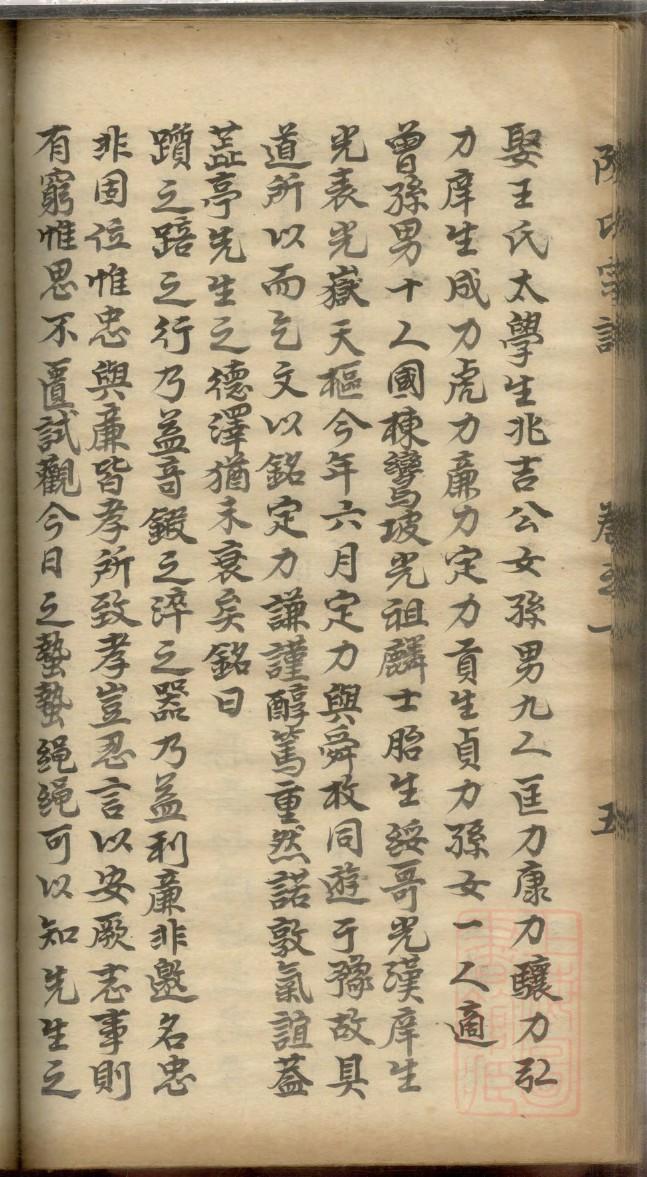 娶王氏太學生兆吉公女孫男九人匡力康力驤力弘
力庠生成力虎力廉力定力貢生貞力孫女一人適
曾孫男十人國棟鸞坡光祖麟士胎生綏哥光漢庠生
光表光嶽天樞今年六月定力與舜枚同遊于豫故具
道所以而乞文以銘定力謙謹醇篤重然諾敦氣誼蓋
藎亭先生之德澤猶未衰矣銘曰
躓之踣之行乃益奇鍛之淬之器乃益利廉非邀名忠
非固位惟忠與廉皆孝所致孝豈忍言以安厥志事則
有窮惟思不匱試觀今日之蟄蟄繩繩可以知先生之
卷之一
五